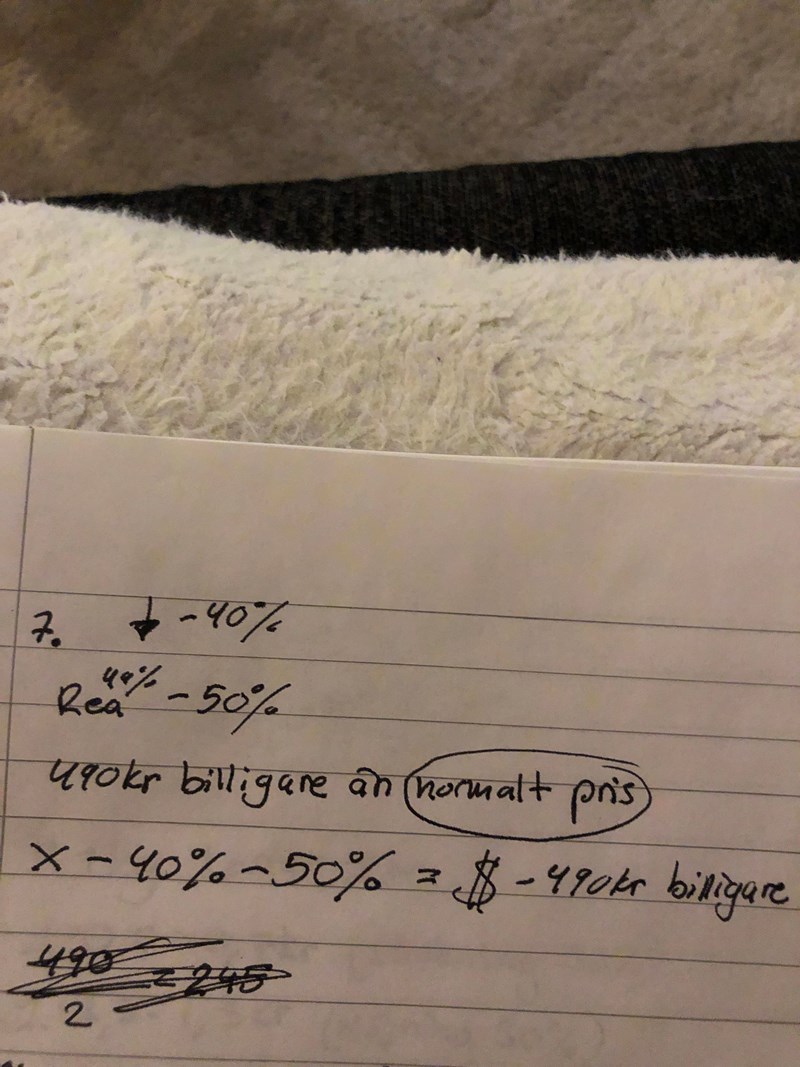 7. ↓ -40%
Rea 40% -50%
490kr billigare än normalt pris
X - 40% - 50% = $ - 490kr billigare
490/2 = 245